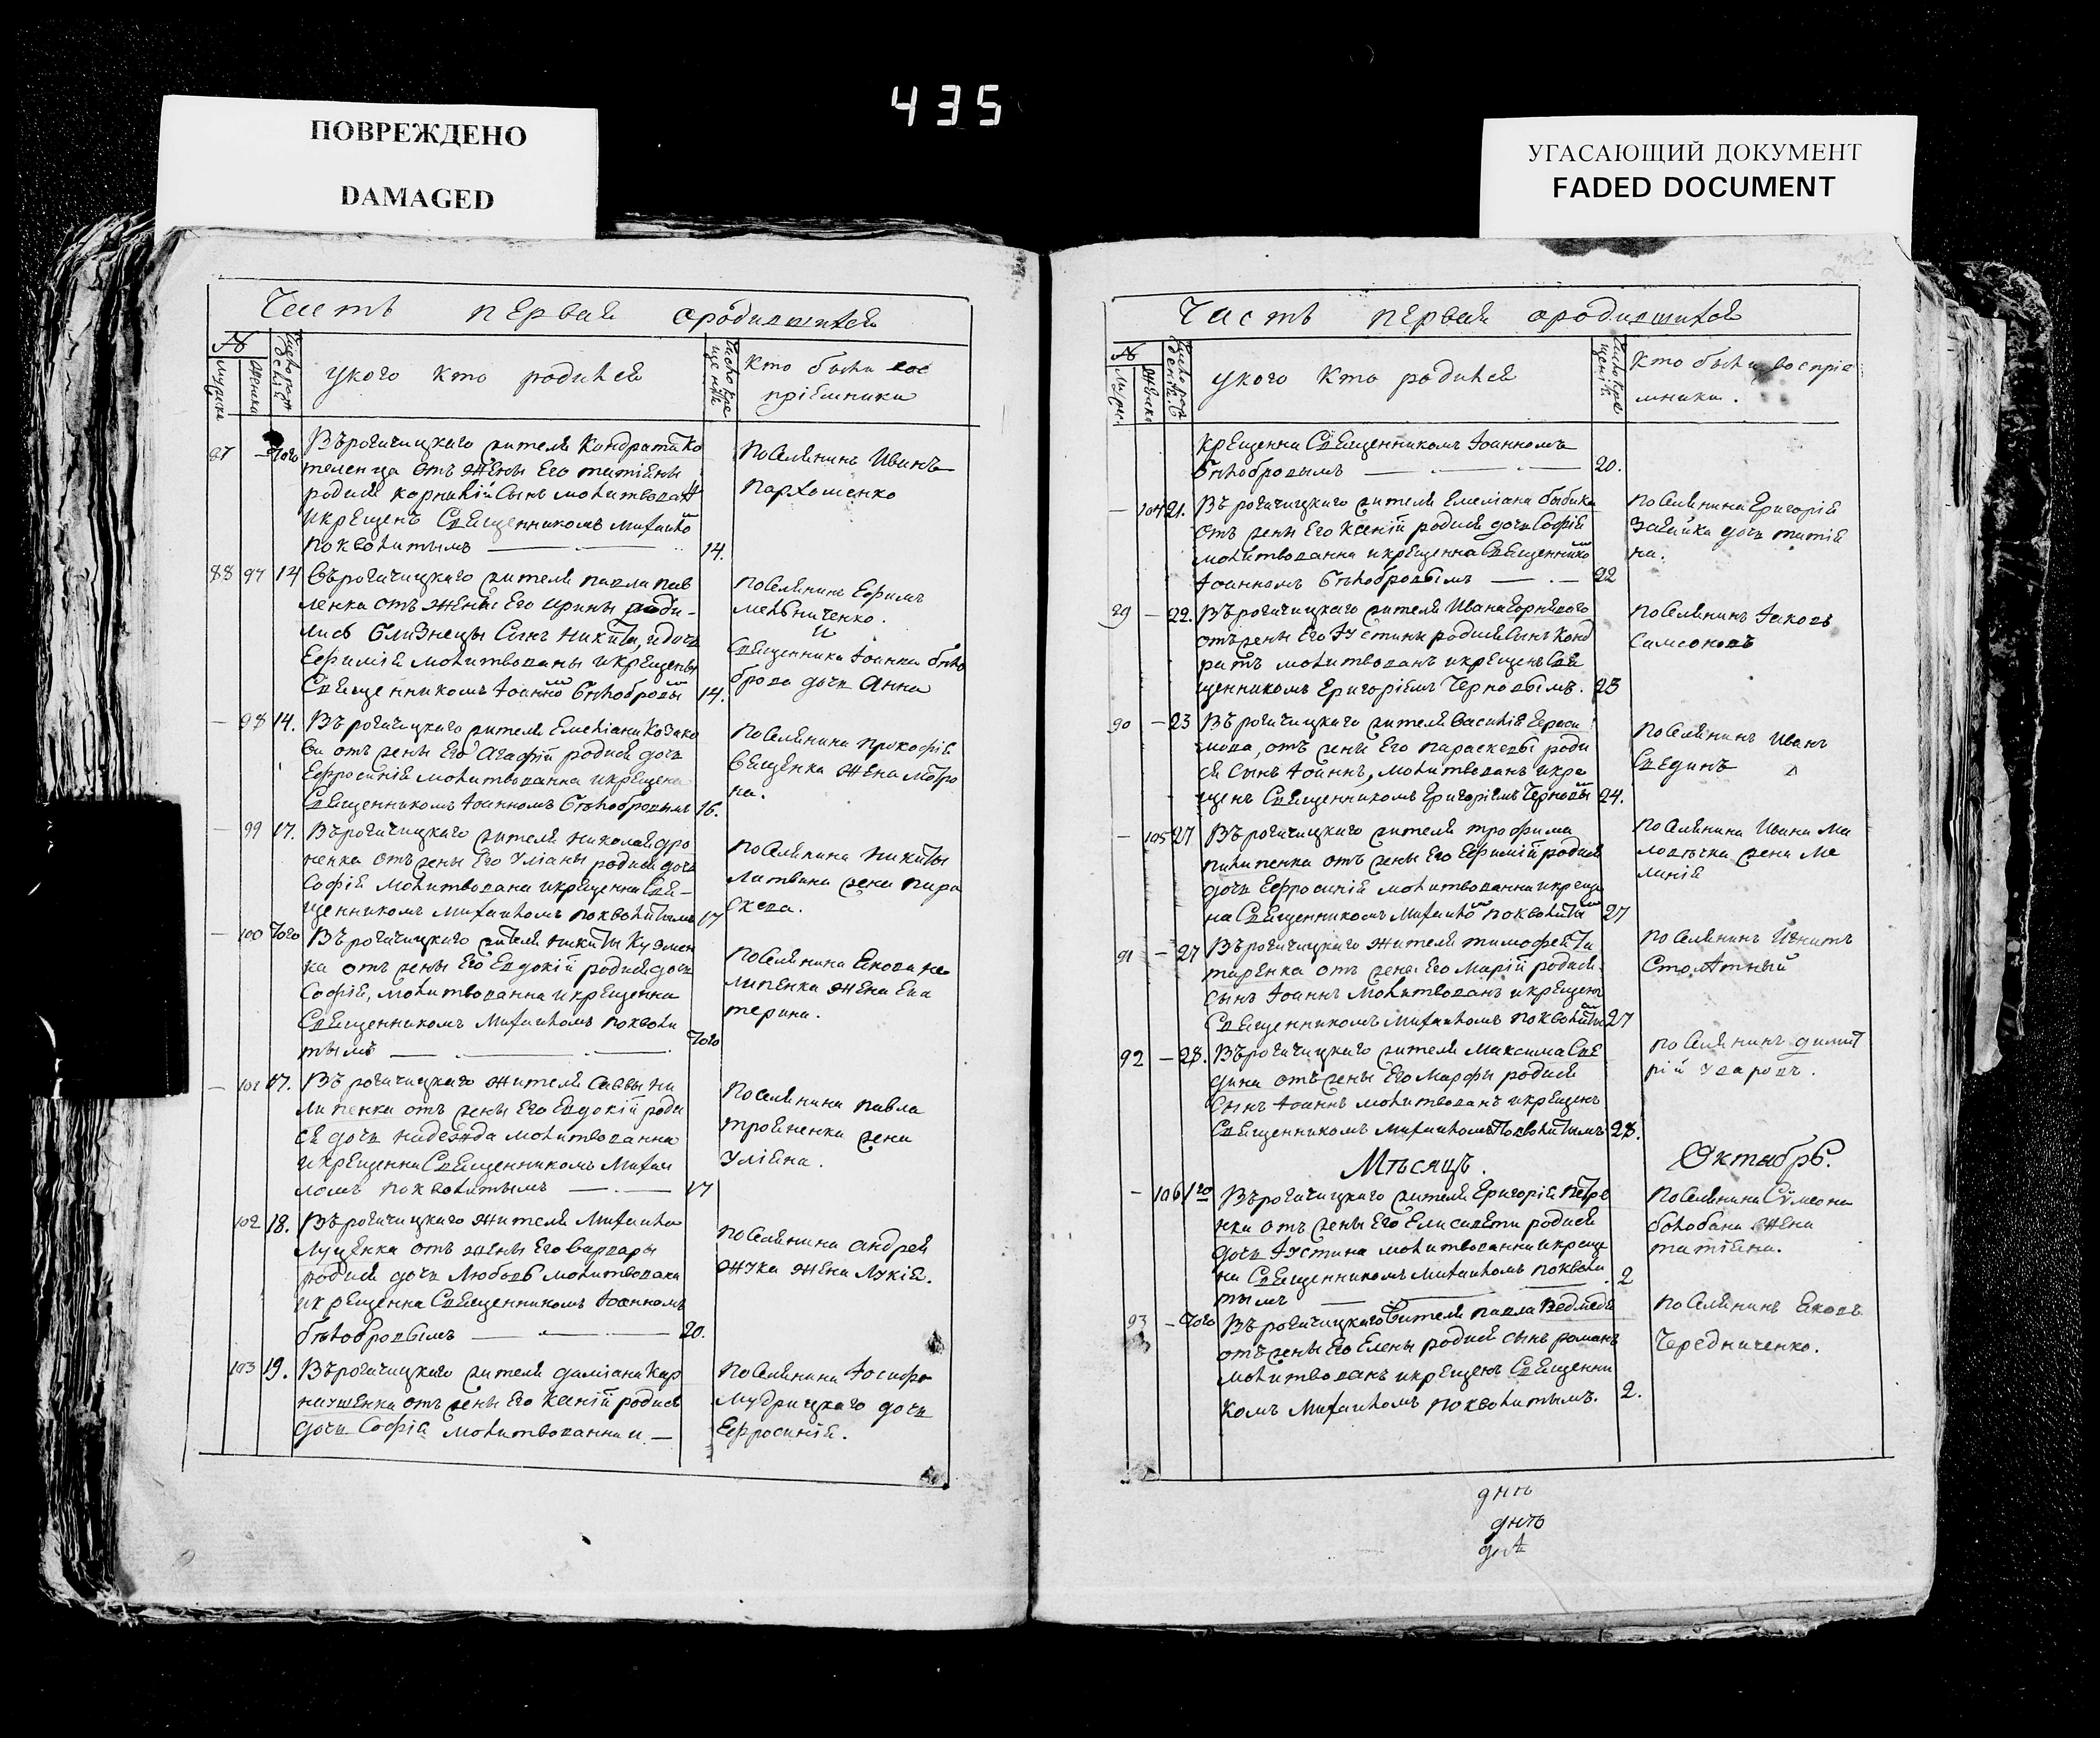 435
ПОВРЕЖДЕНО
DAMAGED
УГАСАЮЩИЙ ДОКУМЕНТ
FADED DOCUMENT
Часть первая ородившихся
№
мужска
женска
Число рож
дения
укого кто родился
Число кре
щения
Кто были вос
приемники
87 — Того
Въ рогачицкаго жителя Кондрата Ко
теленца отъ жены Его татіены
родился корнилій Сынъ молитвованъ
и крещенъ Священникомъ михаило
поквалитымъ — 14.
Поселянинъ Иванъ
Пархоменко
88 97 14
Въ рогачицкаго жителя павла пав
ленка отъ жены Его ирины роди-
лись близнецы Сынъ никита, и дочь
Ефимія молитвованы и крещены
Священникомъ Іоанно Бѣлобровы 14.
поселянинъ Ефимъ
мельниченко.
и
Священника Іоанна бѣло
брова дочь Анна
— 98 14.
Въ рогачицкаго жителя Емеліана Козако
ва отъ жены Его Агафіи родися дочь
Ефросинія молитвованна и крещена
Священникомъ Іоанномъ Бѣлобровымъ 16.
поселянина прокофія
Свещенка жена мотро
на.
— 99 17.
Въ рогачицкаго жителя николая дро
ненка отъ жены Его Уліаны родися дочь
Софія молитвована и крещенна Свя-
щенникомъ михаиломъ поквалитымъ 17
поселянина никиты
литвина жена пара
скева.
— 100 Того
Въ рогачицкаго жителя никиты Кузмен
ка отъ жены Его Евдокіи родися дочь
Софія, молитвованна и крещенна
Священникомъ михаиломъ поквали
тымъ — Того
поселянина Якова не
липенка жена Ека
терина.
— 101 17.
Въ рогачицкаго жителя Саввы ни
липенка отъ жены Его Евдокіи роди
ся дочь надежда молитвованна
и крещенна Священникомъ михаи
ломъ поквалитымъ — 17
поселянина павла
трояненка жена
Уліяна.
102 18.
Въ рогачицкаго жителя михаила
луценка отъ жены Его варвары
родися дочь Любовь молитвована
и крещенна Священникомъ Іоанномъ
бѣлобровымъ — 20.
поселянина андрея
жука жена Лукія.
103 19.
Въ рогачицкаго жителя даміана Кар
наушенка отъ жены Его Ксеніи родися
дочь Софія молитвованна и —
поселянина Іосифа
мудрицкаго дочь
Ефросинія.
Часть первая ородившихся
№
мужск
женска
Число рож
дения
укого кто родился
Число кре
щения
Кто были воспріе
мники.
крещенна Священникомъ Іоанномъ
Бѣлобровымъ — 20.
— 104 21.
Въ рогачицкаго жителя Емеліана бабика
отъ жены Его Ксеніи родися дочь Софія
молитвованна и крещенна Священнико
Іоанномъ Бѣлобровымъ — 22
поселянина Григорія
Заяйка дочь татія
на.
89 — 22.
Въ рогачицкаго жителя Ивана
отъ жены Его Іустины родися Сынъ Конд
ратъ молитвованъ и крещенъ Свя
щенникомъ Григоріемъ Черновымъ. 23
поселянинъ Іаковъ
Самсоновъ
90 — 23
Въ рогачицкаго жителя василія Гераси
мова, отъ жены Его параскевы роди
ся Сынъ Іоаннъ, молитвованъ и кре
щенъ Священникомъ Григоріемъ Черновы 24.
поселянинъ Иванъ
Сведунъ
— 105 27
Въ рогачицкаго жителя трофима
пилипенка отъ жены Его Ефиміи родися
дочь Ефросинія молитвованна и креще
на Священникомъ михаило поквалиты 27
поселянина Ивана Ма
ловѣчка жена ме
ланія
91 — 27
Въ рогачицкаго жителя тимофея та
таренка отъ жены Его Маріи родися
сынъ Іоаннъ молитвованъ и крещенъ
Священникомъ михаиломъ поквалиты 27
поселянинъ Игнатъ
Столѣтный
92 — 28.
Въ рогачицкаго жителя Максима Све
дуна отъ жены Его Марфы родися
Сынъ Іоаннъ молитвованъ и крещенъ
Священникомъ михаиломъ Поквалитымъ 28.
поселянинъ димит
рій Уваровъ.
Мѣсяцъ. Октябрь.
— 106 1го
Въ рогачицкаго жителя Григорія петре
нка отъ жены Его Елисавети родися
дочь Іустина молитвованна и креще
на Священникомъ михаиломъ поквали
тымъ — 2
поселянина Сумеона
болобана жена
татіяна.
93 — Того
Въ рогачицкаго жителя павла Ведмедя
отъ жены Его Елены родися сынъ романъ
молитвованъ и крещенъ Священни
комъ михаиломъ поквалитымъ. 2.
поселянинъ Яковъ
Чередниченко.